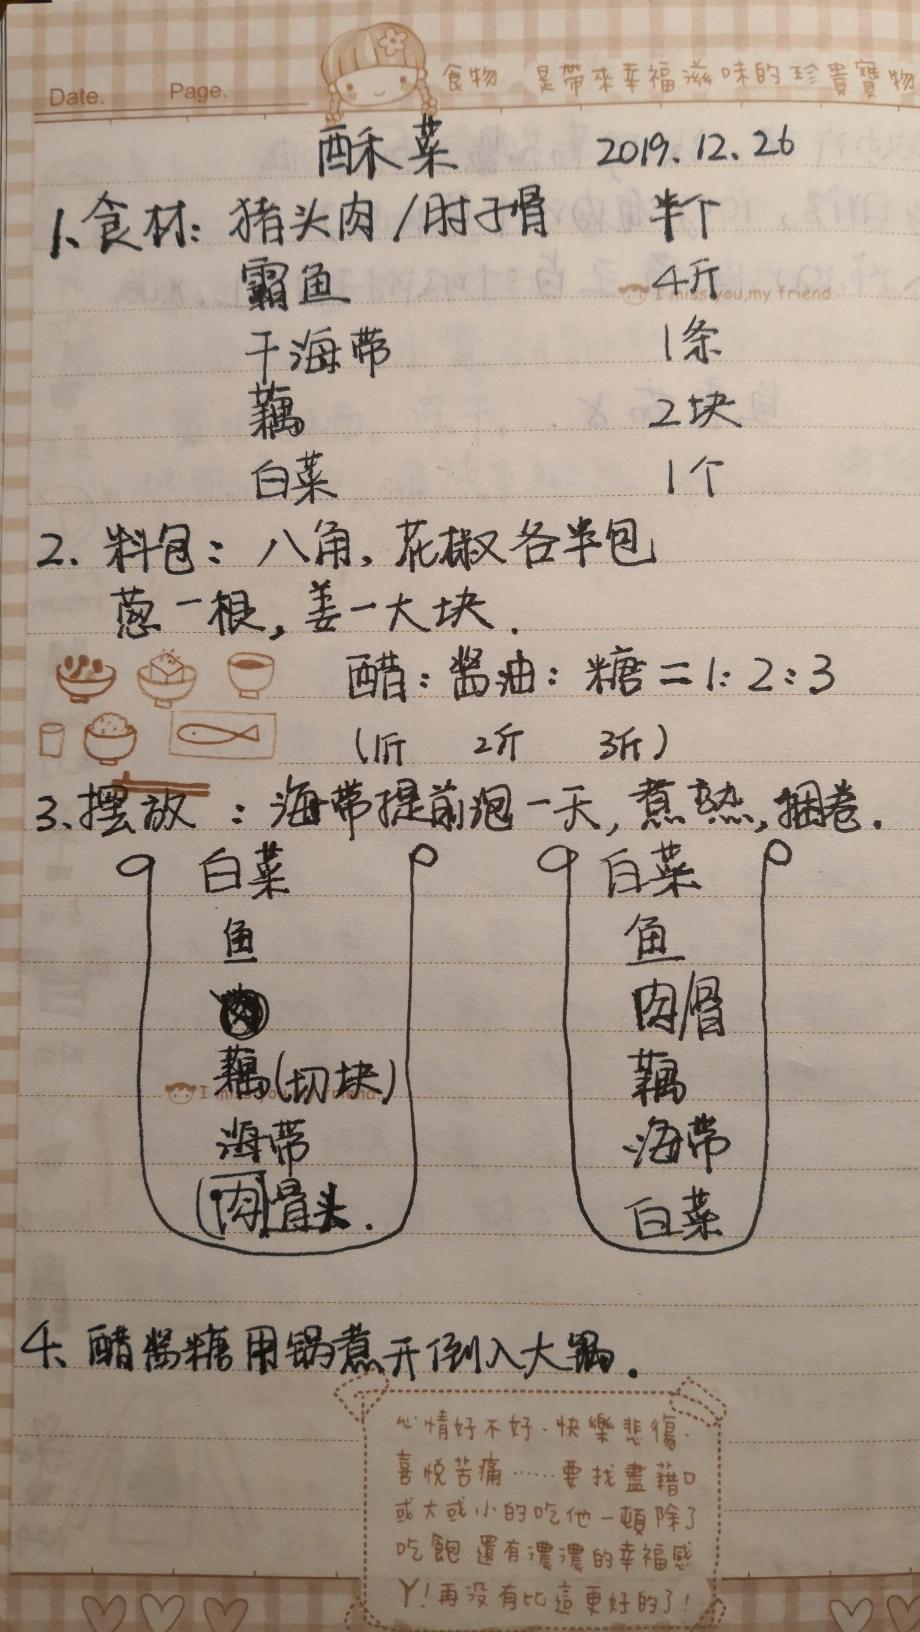 Date. Page. 食物 是帶來幸福滋味的珍貴寶物
酥菜 2019.12.26
1、食材：猪头肉/肘子骨 半个
霸鱼 4斤
I miss you, my friend
干海带 1条
藕 2块
白菜 1个
2. 料包：八角，花椒各半包
葱一根，姜一大块.
醋：酱油：糖=1:2:3
(1斤 2斤 3斤)
3、摆放：海带提前泡一天，煮熟，捆卷.
白菜
鱼
藕(切块)
海带
(肉)骨头.
白菜
鱼
肉/骨
藕
海带
白菜
4、醋酱糖用锅煮开倒入大锅.
心情好不好·快樂悲傷·
喜悅苦痛……要找盡藉口
或大或小的吃他一頓除了
吃飽 還有濃濃的幸福感
丫!再没有比這更好的了!